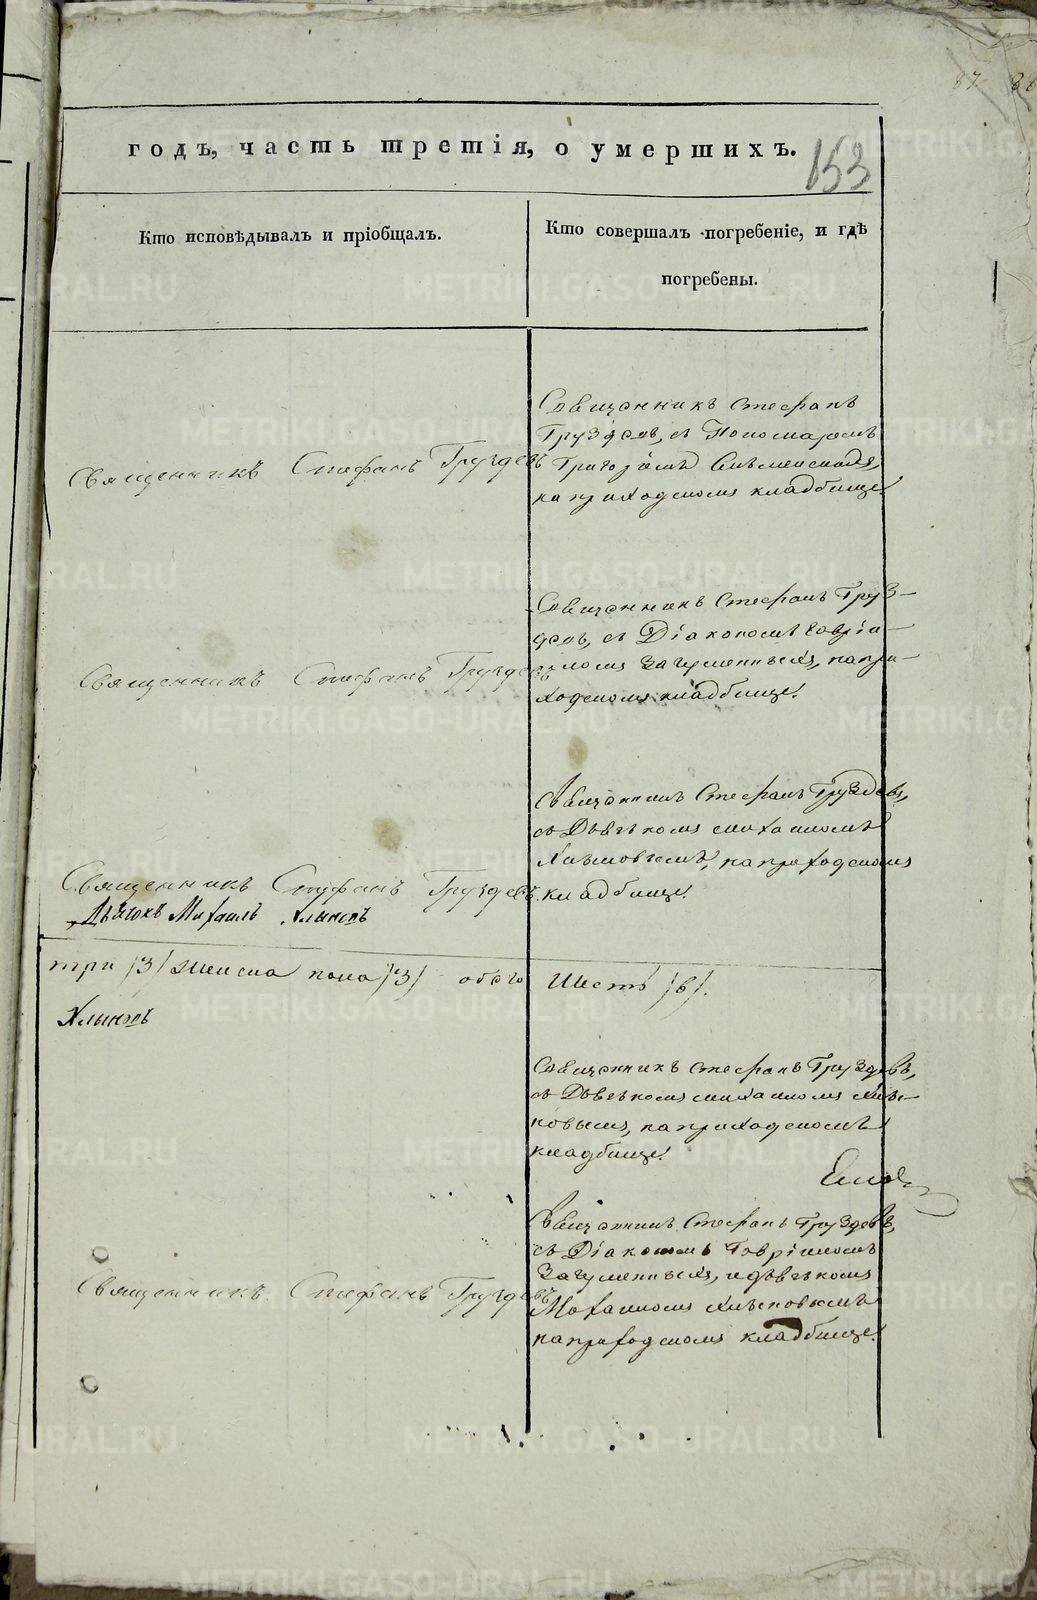 87 88
годъ, часть третія, о умершихъ.
153
Кто исповѣдывалъ и пріобщалъ.
Кто совершалъ погребеніе, и гдѣ
погребены.
Священникъ Стефанъ Груздевъ
Священникъ Стефанъ
Груздевъ, съ Пономаремъ
Григоріемъ
на приходскомъ кладбище.
Священникъ Стефанъ Груздевъ
Священникъ Стефанъ Груз-
девъ, съ Діакономъ Гавріи-
ломъ Загуменныхъ, на при-
ходскомъ кладбище.
Священникъ Стефанъ Груздевъ.
Дьячокъ Михаилъ Хлыновъ
Священникъ Стефанъ Груздевъ,
съ Дьячкомъ Михаиломъ
Хлыновымъ, на приходскомъ
кладбище.
три /3/ женска пола /3/ обого Шесть /6/.
Хлыновъ
Священникъ Стефанъ Груздевъ,
съ Дьячкомъ Михаиломъ Хлы-
новымъ, на приходскомъ
кладбище.
Священникъ Стефанъ Груздевъ
Священникъ Стефанъ Груздевъ,
съ Діакономъ Гавріиломъ
Загуменныхъ, и дьячкомъ
Михаиломъ Хлыновымъ
на приходскомъ кладбище.
METRIKI.GASO-URAL.RU